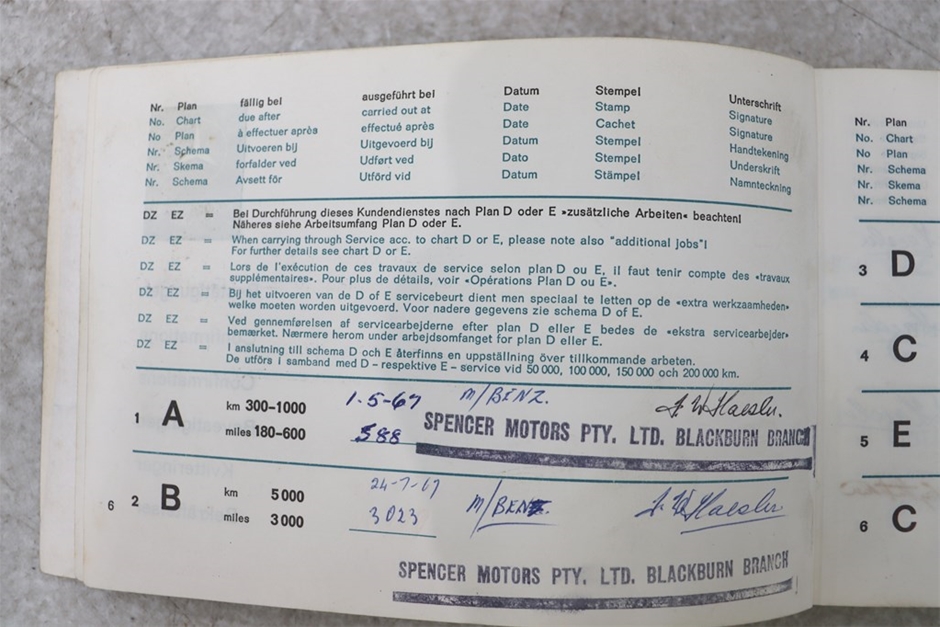 Nr. Plan fällig bei ausgeführt bei Datum Stempel Unterschrift
No. Chart due after carried out at Date Stamp Signature
No Plan à effectuer après effectué après Date Cachet Signature
Nr. Schema Uitvoeren bij Uitgevoerd bij Datum Stempel Handtekening
Nr. Skema forfalder ved Udført ved Dato Stempel Underskrift
Nr. Schema Avsett för Utförd vid Datum Stämpel Namnteckning
DZ EZ = Bei Durchführung dieses Kundendienstes nach Plan D oder E »zusätzliche Arbeiten« beachten!
Näheres siehe Arbeitsumfang Plan D oder E.
DZ EZ = When carrying through Service acc. to chart D or E, please note also "additional jobs"!
For further details see chart D or E.
DZ EZ = Lors de l'exécution de ces travaux de service selon plan D ou E, il faut tenir compte des «travaux
supplémentaires». Pour plus de détails, voir «Opérations Plan D ou E».
DZ EZ = Bij het uitvoeren van de D of E servicebeurt dient men speciaal te letten op de «extra werkzaamheden»
welke moeten worden uitgevoerd. Voor nadere gegevens zie schema D of E.
DZ EZ = Ved gennemførelsen af servicearbejderne efter plan D eller E bedes de «ekstra servicearbejder»
bemærket. Nærmere herom under arbejdsomfanget for plan D eller E.
DZ EZ = I anslutning till schema D och E återfinns en uppställning över tillkommande arbeten.
De utförs i samband med D - respektive E - service vid 50 000, 100 000, 150 000 och 200 000 km.
1 A km 300-1000 1-5-67 M/BENZ.
miles 180-600 588 SPENCER MOTORS PTY. LTD. BLACKBURN BRANCH
2 B km 5 000 24-7-67 M/BENZ
miles 3 000 3023
SPENCER MOTORS PTY. LTD. BLACKBURN BRANCH
6
Nr. Plan
No. Chart
No Plan
Nr. Schema
Nr. Skema
Nr. Schema
3 D
4 C
5 E
6 C